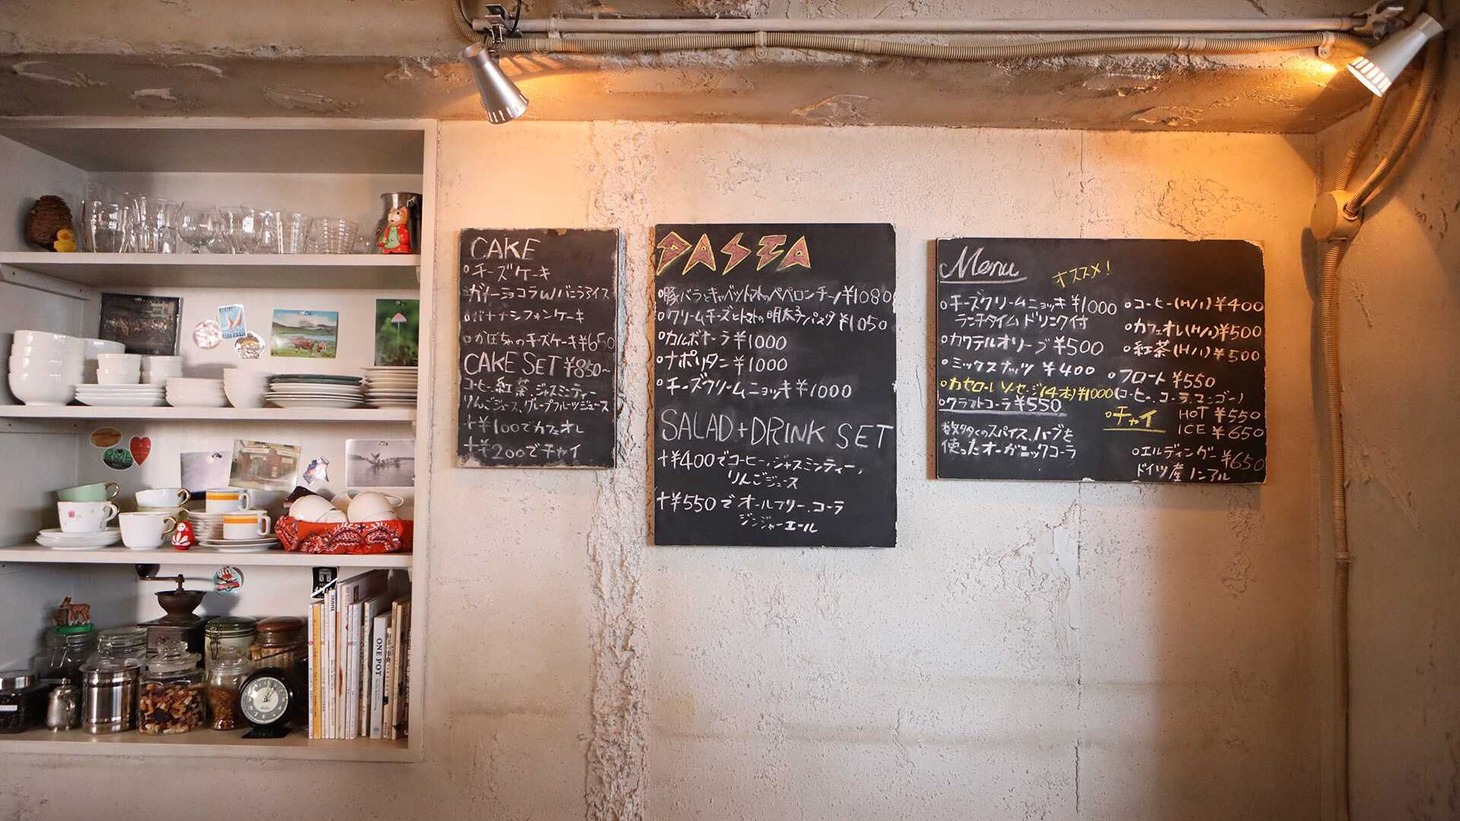 CAKE
・チーズケーキ
・ガトーショコラw/バニラアイス
・バナナシフォンケーキ
・かぼちゃのチーズケーキ¥650
CAKE SET ¥850~
コーヒー、紅茶、ジャスミンティー
りんごジュース、グレープフルーツジュース
+¥100でカフェオレ
+¥200でチャイ
PASTA
・豚バラとキャベツトマトのペペロンチーノ¥1080
・クリームチーズとトマトの明太子パスタ¥1050
・カルボナーラ¥1000
・ナポリタン¥1000
・チーズクリームニョッキ¥1000
SALAD+DRINK SET
+¥400でコーヒー、ジャスミンティー、
りんごジュース
+¥550でオールフリー、コーラ
ジンジャーエール
Menu
オススメ!
・チーズクリームニョッキ¥1000
ランチタイムドリンク付
・カクテルオリーブ¥500
・ミックスナッツ¥400
・カセロールソーセージ(4本)¥1000
・クラフトコーラ¥550
数多くのスパイス、ハーブを
使ったオーガニックコーラ
・コーヒー(H/I)¥400
・カフェオレ(H/I)¥500
・紅茶(H/I)¥500
・フロート¥550
(コーヒー、コーラ、マンゴー)
・チャイ HOT ¥550
ICE ¥650
・エルディンガー¥650
ドイツ産ノンアル
ONE POT